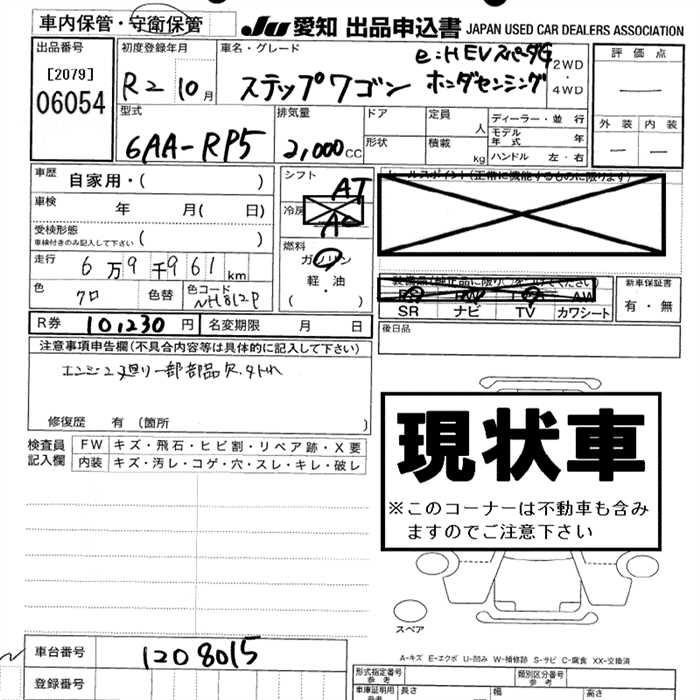 車内保管・守衛保管
JU 愛知 出品申込書 JAPAN USED CAR DEALERS ASSOCIATION
出品番号
[2079]
06054
初度登録年月
R2 10月
車名・グレード
e:HEVスパーダG
ステップワゴン ホンダセンシング
2WD
・
4WD
評価点
—
外装 内装
— —
型式
6AA-RP5
排気量
2,000CC
ドア
形状
定員
人
積載
kg
ディーラー・並行
モデル年式 年
ハンドル 左・右
車歴
自家用・( )
車検 年 月( 日)
受検形態
車検付きのみ記入して下さい ( )
走行 6万9千961km
色 クロ 色替 色コード NH812P
シフト
AT
冷房
燃料
ガソリン
・
軽油
( )
R券 101,230円 名変期限 月 日
SR ナビ TV カワシート
新車保証書
有・無
後日品
注意事項申告欄(不具合内容等は具体的に記入して下さい)
エンジン廻り一部部品欠.外れ
修復歴 有 (箇所 )
検査員記入欄
FW キズ・飛石・ヒビ割・リペア跡・X要
内装 キズ・汚レ・コゲ・穴・スレ・キレ・破レ
現状車
※このコーナーは不動車も含み
ますのでご注意下さい
スペア
A-キズ E-エクボ U-凹み W-補修跡 S-サビ C-腐食 XX-交換済
車台番号 1208015
登録番号
形式指定番号
参考
類別区分番号
参考
車庫証明用
参考
長さ 幅 高さ